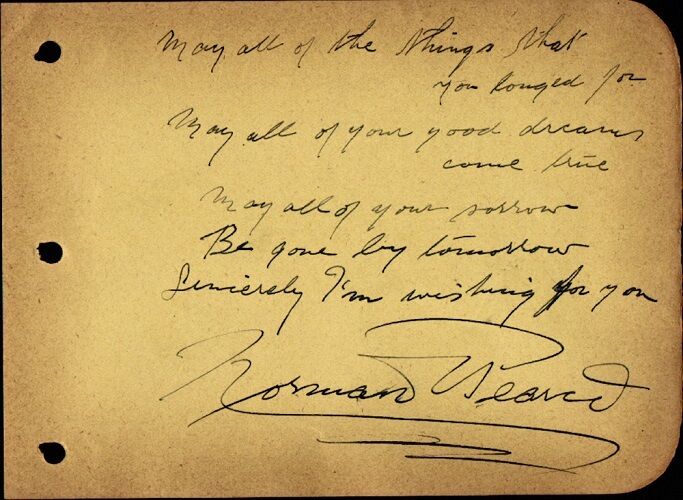 May all of the things that
you longed for
May all of your good dreams
come true
May all of your sorrow
Be gone by tomorrow
Sincerely I'm wishing for you
Norman